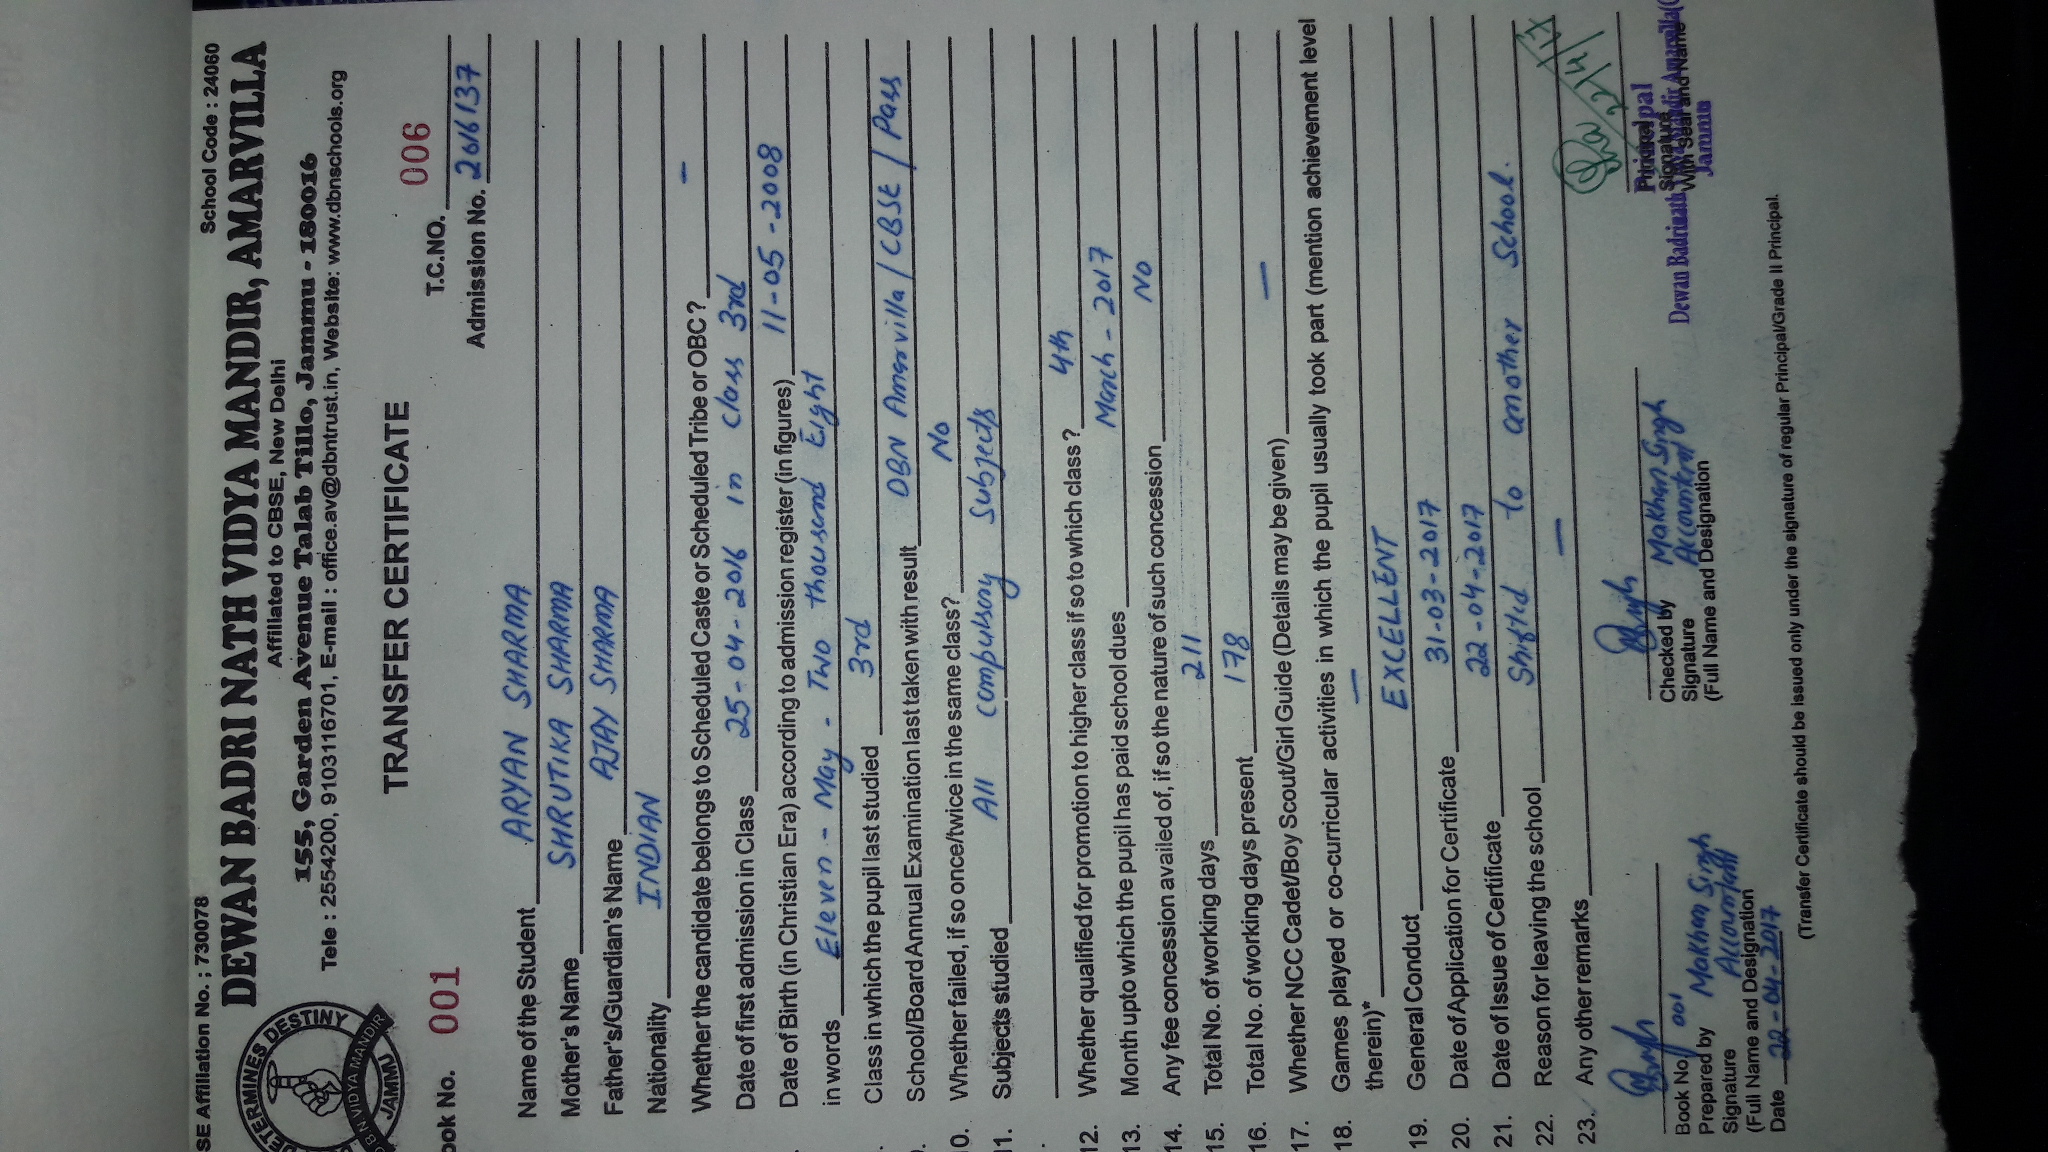 SE Affiliation No. ; 730078 School Code : 24060
DEWAN BADRI NATH VIDYA MANDIR, AMARVILLA
Affiliated to CBSE, New Delhi
155, Garden Avenue Talab Tillo, Jammu - 180016
Tele : 2554200, 9103116701, E-mail : office.av@dbntrust.in, Website: www.dbnschools.org
ETERMINES DESTINY
BN VIDYA MANDIR
JAMMU
TRANSFER CERTIFICATE
ook No. 001 T.C.NO. 006
Admission No. 2016137
Name of the Student ARYAN SHARMA
Mother's Name SHRUTIKA SHARMA
Father's/Guardian's Name AJAY SHARMA
Nationality INDIAN
Whether the candidate belongs to Scheduled Caste or Scheduled Tribe or OBC ? -
Date of first admission in Class 25-04-2016 in class 3rd
Date of Birth (in Christian Era) according to admission register (in figures) 11-05-2008
in words Eleven - May - Two thousand Eight
Class in which the pupil last studied 3rd
School/Board Annual Examination last taken with result DBN Amarvilla / CBSE / Pass
10. Whether failed, if so once/twice in the same class? No
11. Subjects studied All compulsory Subjects
12. Whether qualified for promotion to higher class if so to which class ? 4th
13. Month upto which the pupil has paid school dues March - 2017
14. Any fee concession availed of, if so the nature of such concession No
15. Total No. of working days 211
16. Total No. of working days present 178
17. Whether NCC Cadet/Boy Scout/Girl Guide (Details may be given) —
18. Games played or co-curricular activities in which the pupil usually took part (mention achievement level
therein)* —
19. General Conduct EXCELLENT
20. Date of Application for Certificate 31-03-2017
21. Date of Issue of Certificate 22-04-2017
22. Reason for leaving the school Shifted to another School.
23. Any other remarks —
Book No 001
Prepared by Makhan Singh
Signature Accountant
(Full Name and Designation
Date 22-04-2017
Checked by Makhan Singh
Signature Accountant
(Full Name and Designation)
22/4/17
Principal
Signature
With Seal and Name
Dewan Badrinath Vidya Mandir Amarvilla
Jammu
(Transfer Certificate should be issued only under the signature of regular Principal/Grade II Principal.